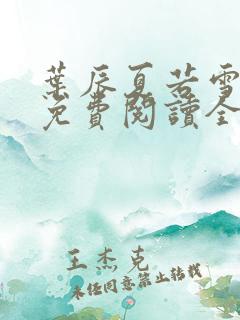 葉辰夏若雪
免費閱讀全
王杰克
未經同意禁止轉載